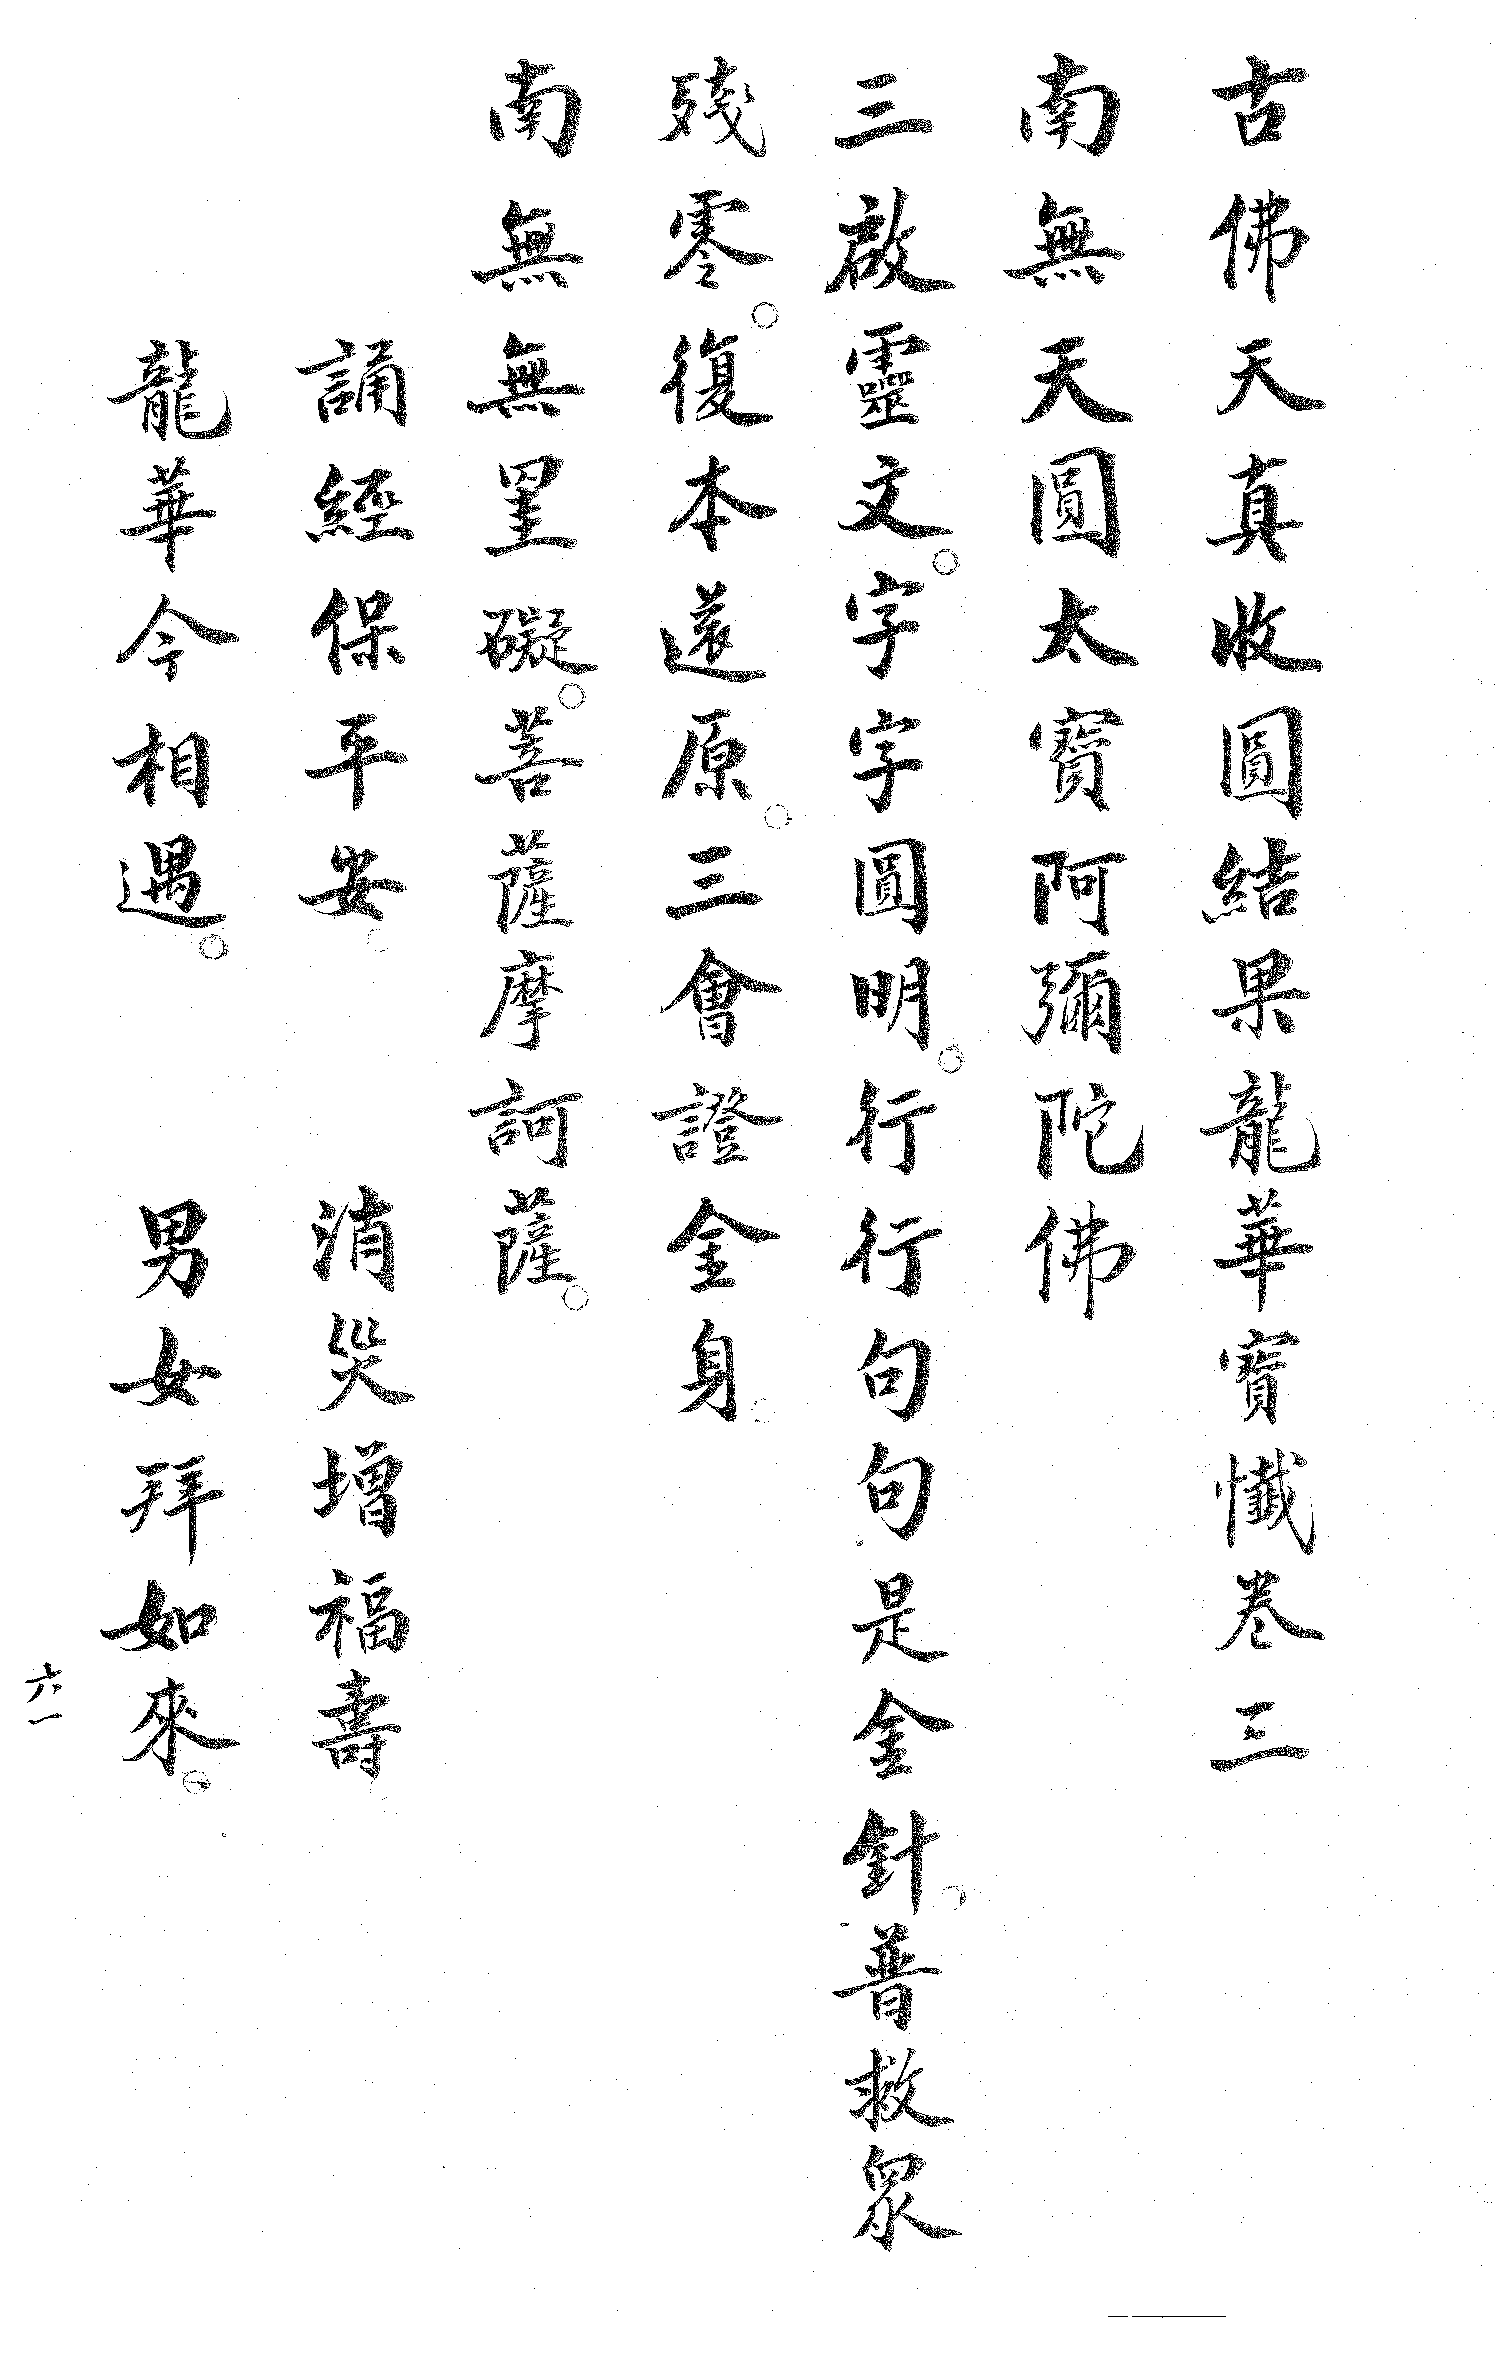 古佛天真收圓結果龍華寶懺卷三
南無天圓太寶阿彌陀佛
三啟靈文。字字圓明。行行句句是金針。普救眾
殘零。復本還原。三會證金身。
南無無罣礙。菩薩摩訶薩。
誦經保平安。　消災增福壽
龍華今相遇。　男女拜如來。
六一